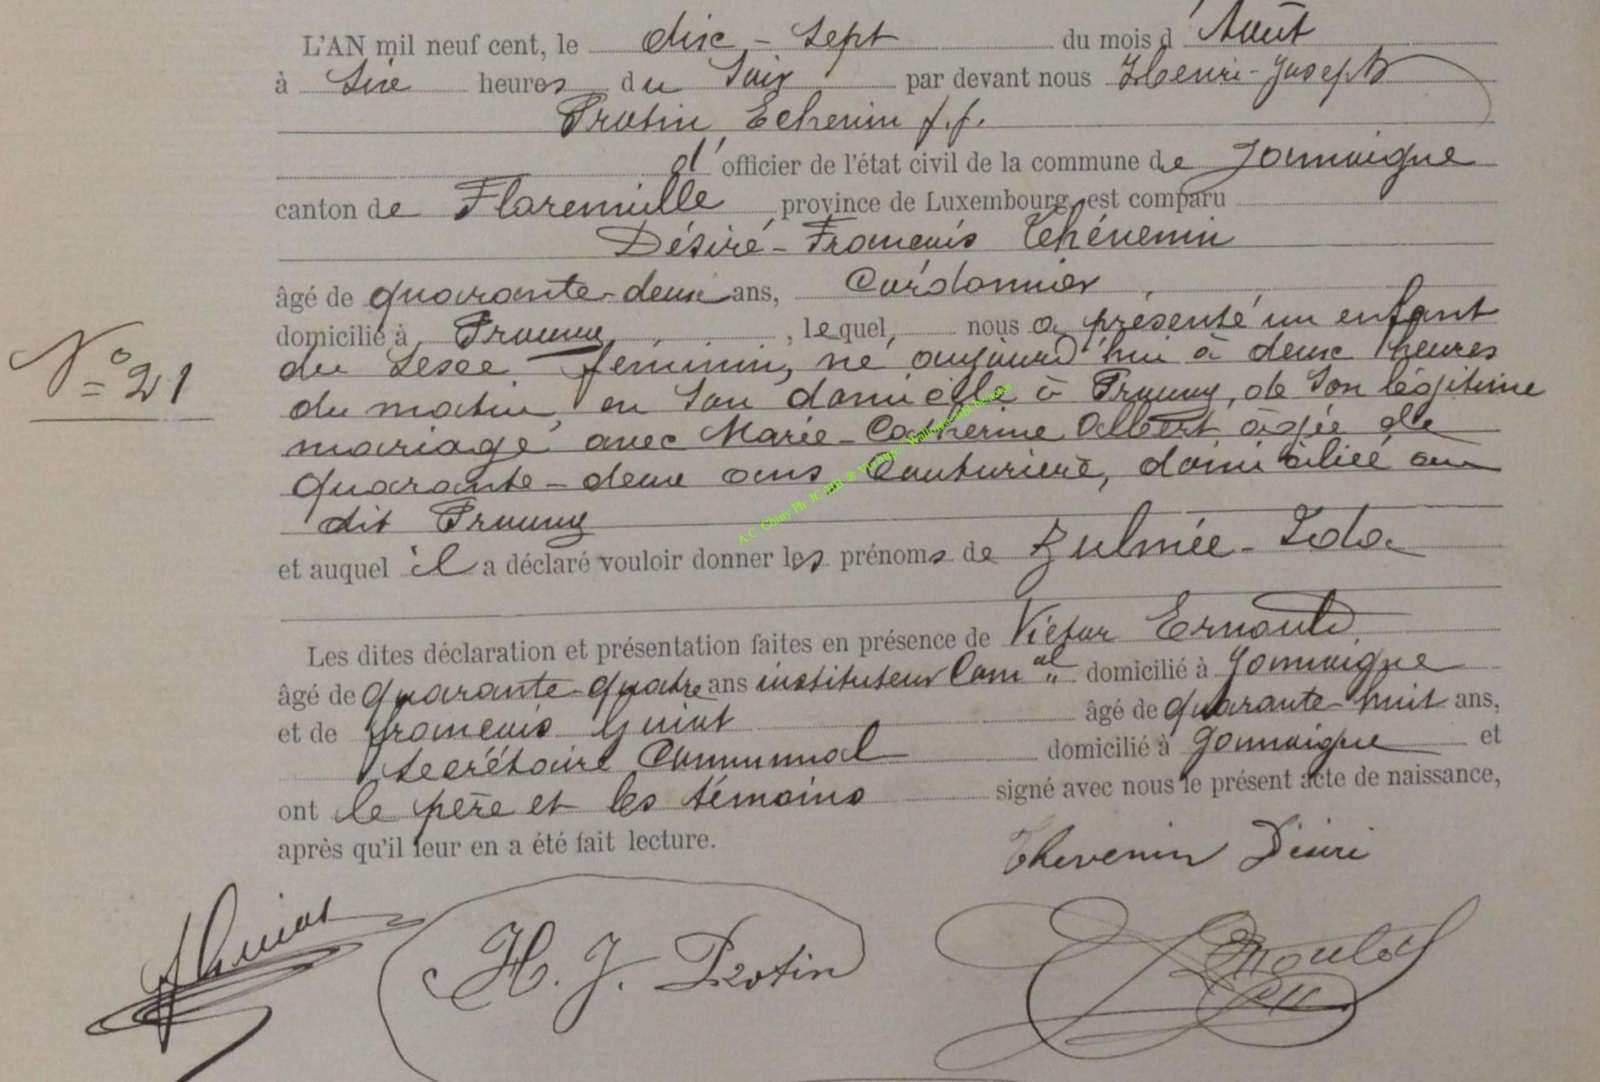 L'AN mil neuf cent, le dix-sept du mois d'Août
à Six heures du Soir par devant nous Henri-Joseph
Protin, Echevin f.f.
d'officier de l'état civil de la commune de Jamoigne
canton de Florenville province de Luxembourg, est comparu
Désiré-François Thévenin
âgé de quarante-deux ans, Cordonnier
domicilié à Prouvy, lequel, nous a présenté un enfant
N° 21
du Sexe féminin, né aujourd'hui à deux heures
du matin en Son domicile à Prouvy, de Son légitime
mariage avec Marie-Catherine Albert âgée de
quarante-deux ans Couturière, domiciliée au
dit Prouvy
et auquel il a déclaré vouloir donner les prénoms de Zulmée-Ida
Les dites déclaration et présentation faites en présence de Victor Ernould
âgé de quarante-quatre ans instituteur Com.al domicilié à Jamoigne
et de François Guiot âgé de quarante-huit ans,
Secrétaire Communal domicilié à Jamoigne et
ont le père et les témoins signé avec nous le présent acte de naissance,
après qu'il leur en a été fait lecture.
Thevenin Désiré
F Guiot H. J. Protin Ernould